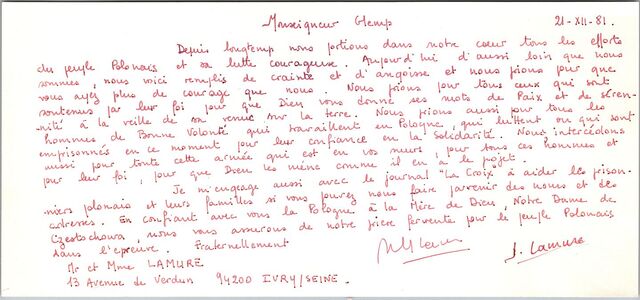 Monseigneur Glemp 21-XII-81.
Depuis longtemp nous portions dans notre cœur tous les efforts
du peuple Polonais et sa lutte courageuse. Aujourd'hui d'aussi loin que nous
sommes, nous voici remplis de crainte et d'angoisse et nous prions pour que
vous ayez plus de courage que nous. Nous prions pour tous ceux qui sont
soutenus par leur foi pour que Dieu vous donne ses mots de Paix et de séren-
nité à la veille de sa venue sur la terre. Nous prions aussi pour tous les
hommes de Bonne Volonté qui travaillent en Pologne, qui luttent ou qui sont
emprisonnés en ce moment pour leur confiance en la Solidarité. Nous intercédons
aussi pour toute cette armée qui est en vos murs, pour tous ces hommes et
pour leur foi, pour que Dieu les mène comme il en a le projet.
Je m'engage aussi avec le journal "La Croix" à aider les prison-
niers polonais et leurs familles si vous pouvez nous faire parvenir des noms et des
adresses. En confiant avec vous la Pologne à la Mère de Dieu, Notre Dame de
Czestochowa, nous vous assurons de notre prière fervente pour le peuple Polonais
dans l'épreuve. Fraternellement
J. Lamure
Mr et Mme LAMURE
13 Avenue de Verdun 94200 IVRY/SEINE.